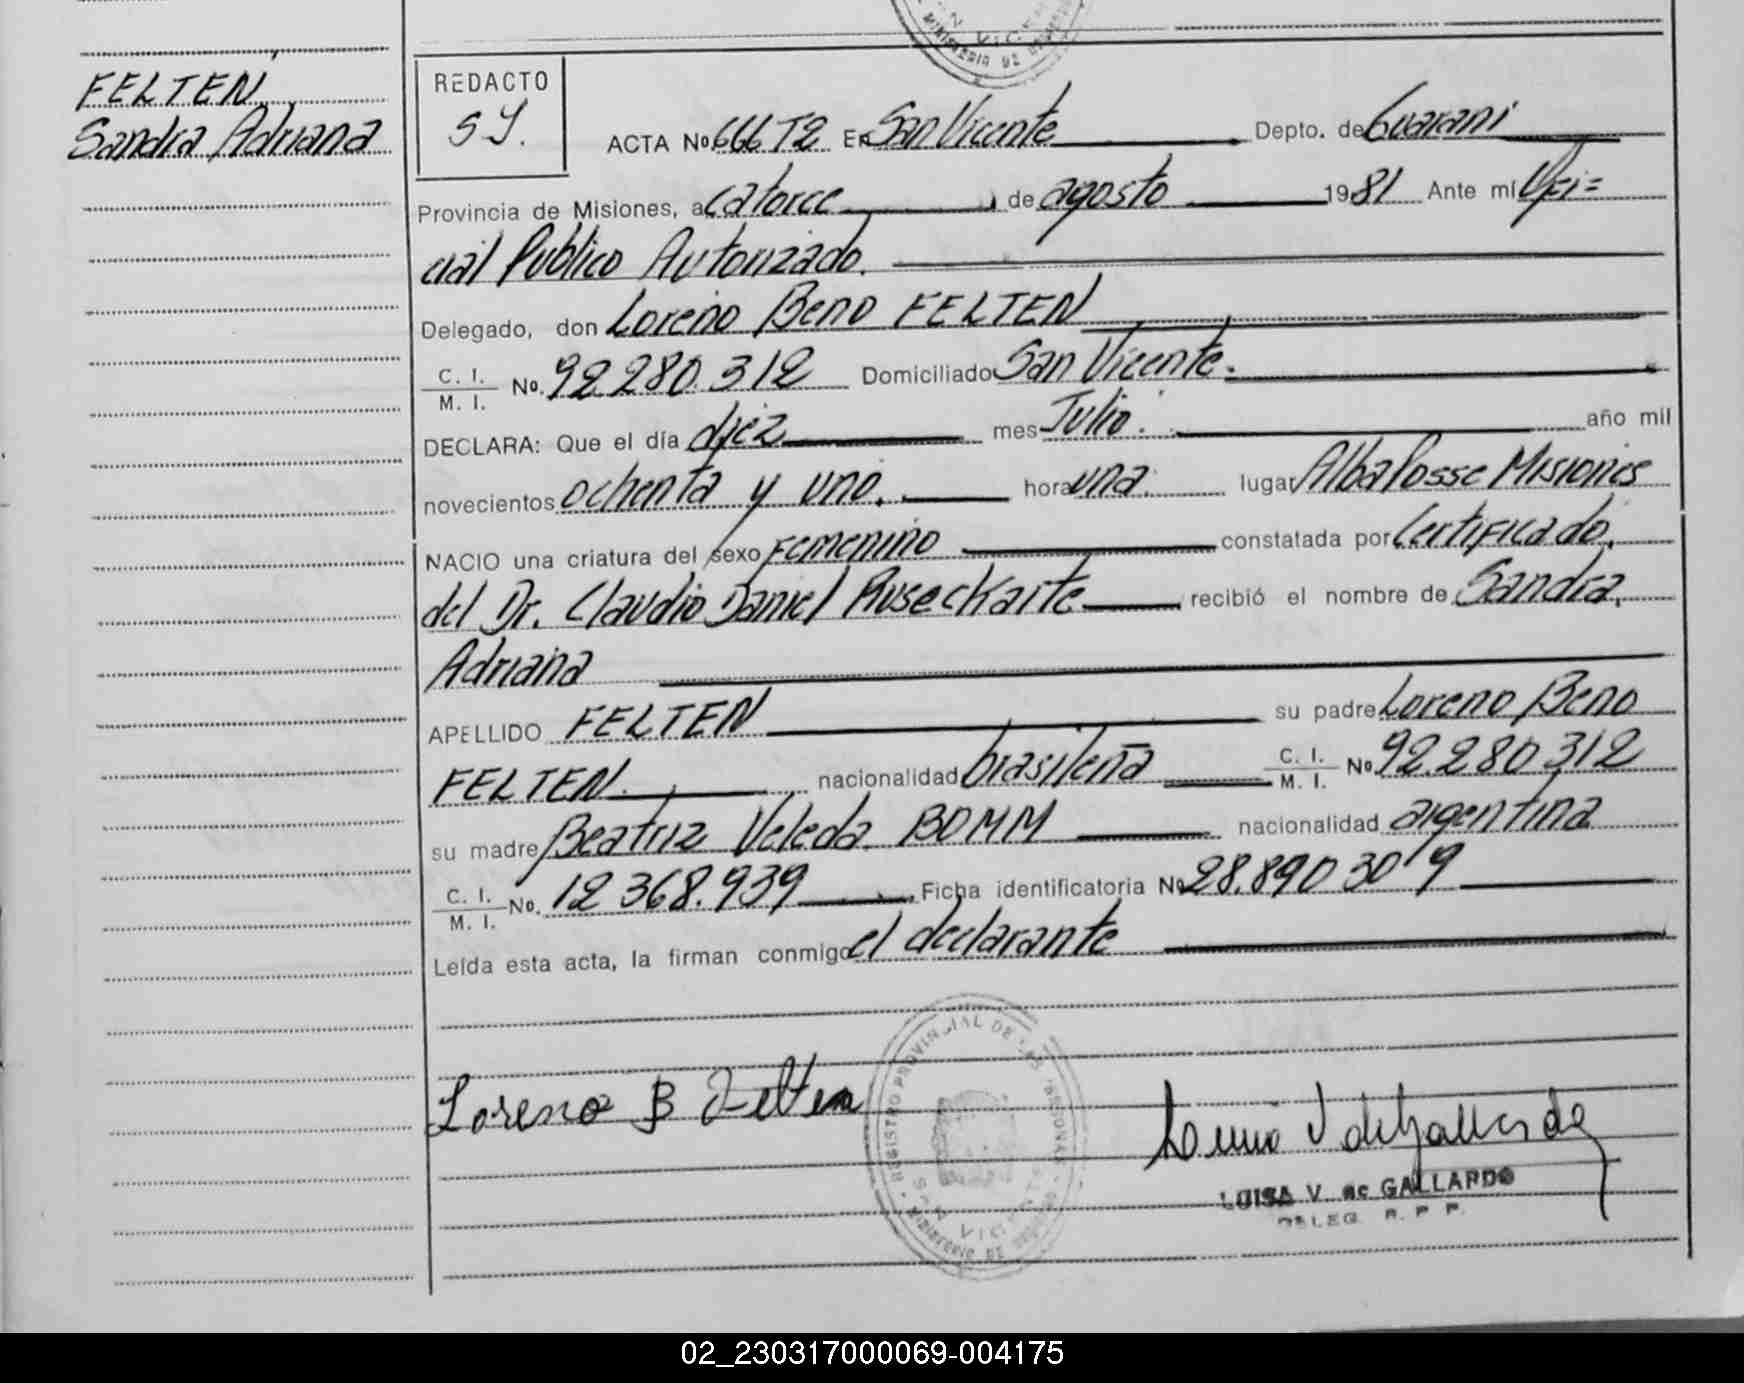 FELTEN
Sandra Adriana
REDACTO
SY.
ACTA No 666 T2 EN San Vicente Depto. de Guarani
Provincia de Misiones, a catorce de agosto 1981 Ante mi Ofi=
cial Publico Autorizado.
Delegado, don Loreno Beno FELTEN
C. I.
M. I. No. 92.280.312 Domiciliado San Vicente.
DECLARA: Que el día diez mes Julio. año mil
novecientos ochenta y uno. hora una. lugar Alba Posse Misiones
NACIO una criatura del sexo Femenino constatada por Certificado.
del Dr. Claudio Daniel recibió el nombre de Sandra
Adriana
APELLIDO FELTEN su padre Loreno Beno
FELTEN nacionalidad brasileña C. I.
M. I. No 92.280.312
su madre Beatriz Veleda BOMM nacionalidad argentina
C. I.
M. I. No. 12.368.939 Ficha identificatoria No 28.890.309
Leída esta acta, la firman conmigo el declarante
Loreno B Felten
REGISTRO PROVINCIAL DE LAS PERSONAS
SAN VICENTE
MINISTERIO DE
LUISA V. de GALLARDO
DELEG. R. P. P.
02_230317000069-004175